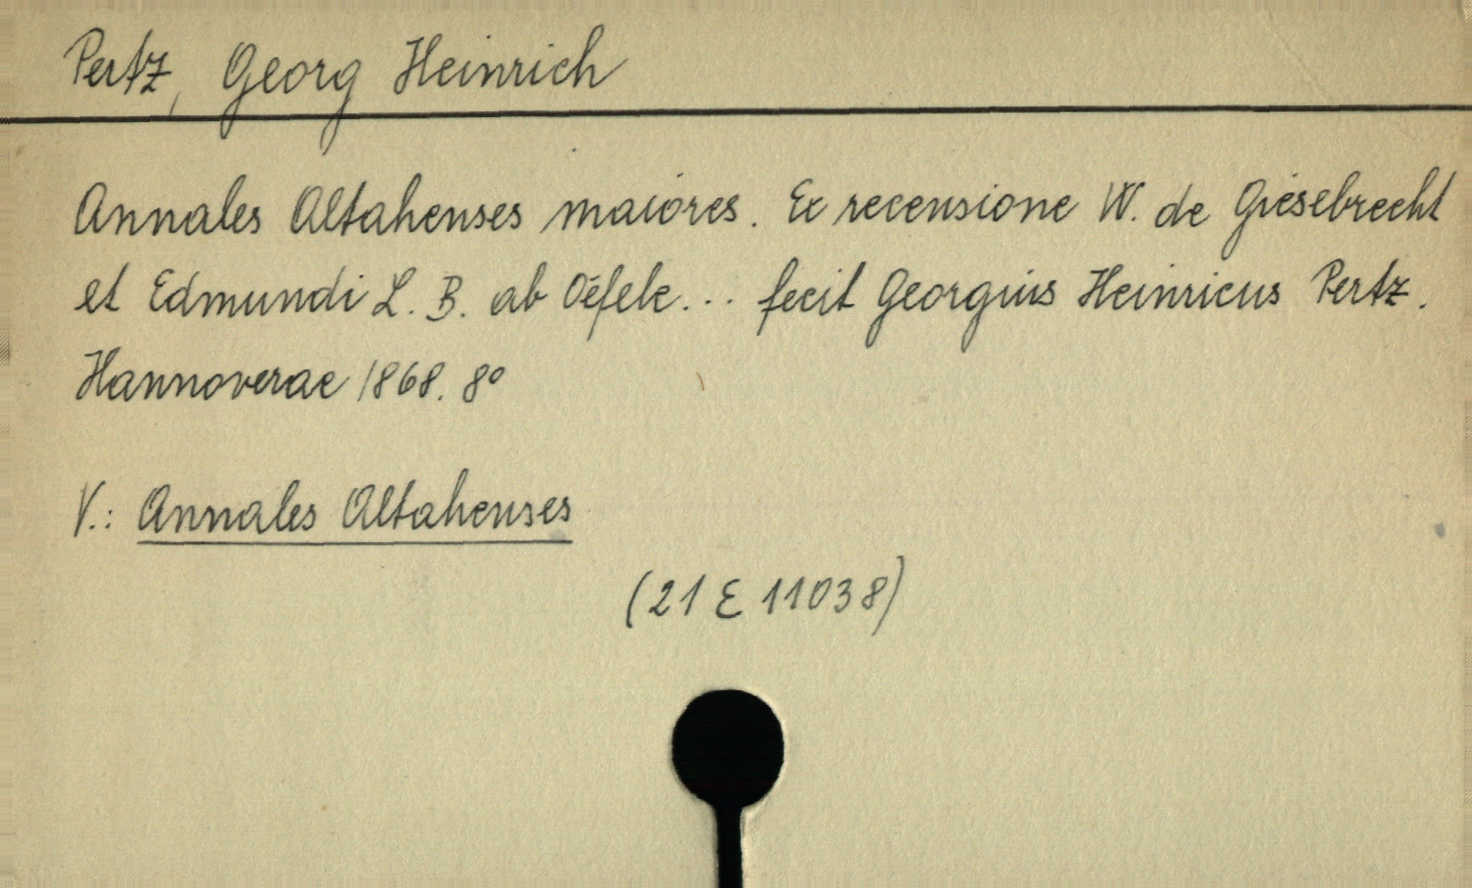 Pertz, Georg Heinrich
Annales Altahenses maiores. Ex recensione W. de Giesebrecht
et Edmundi L. B. ab Oefele... fecit Georgius Heinricus Pertz.
Hannoverae 1868. 8°
V.: Annales Altahenses
(21 E 11038)